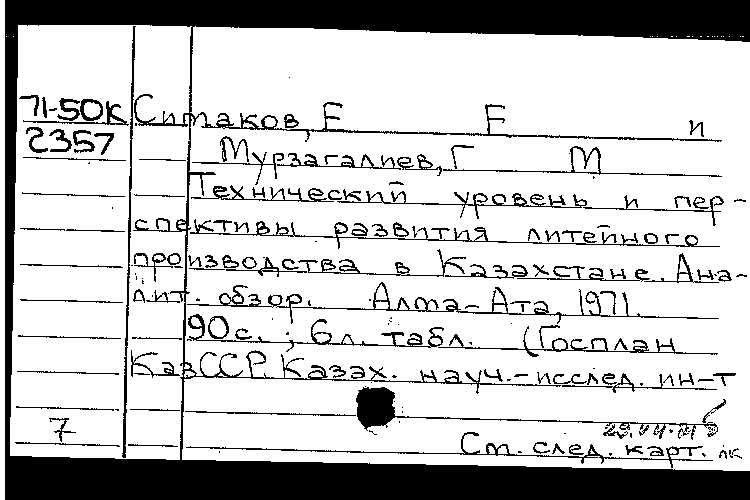 71-50К Ситаков, Е Е и
2357 Мурзагалиев, Г М
Технический уровень и пер-
спективы развития литейного
производства в Казахстане. Ана-
лит. обзор. Алма-Ата, 1971.
90с.; 6л. табл. (Госплан
КазССР. Казах. науч.-исслед. ин-т
7
Ст. след. карт. лк